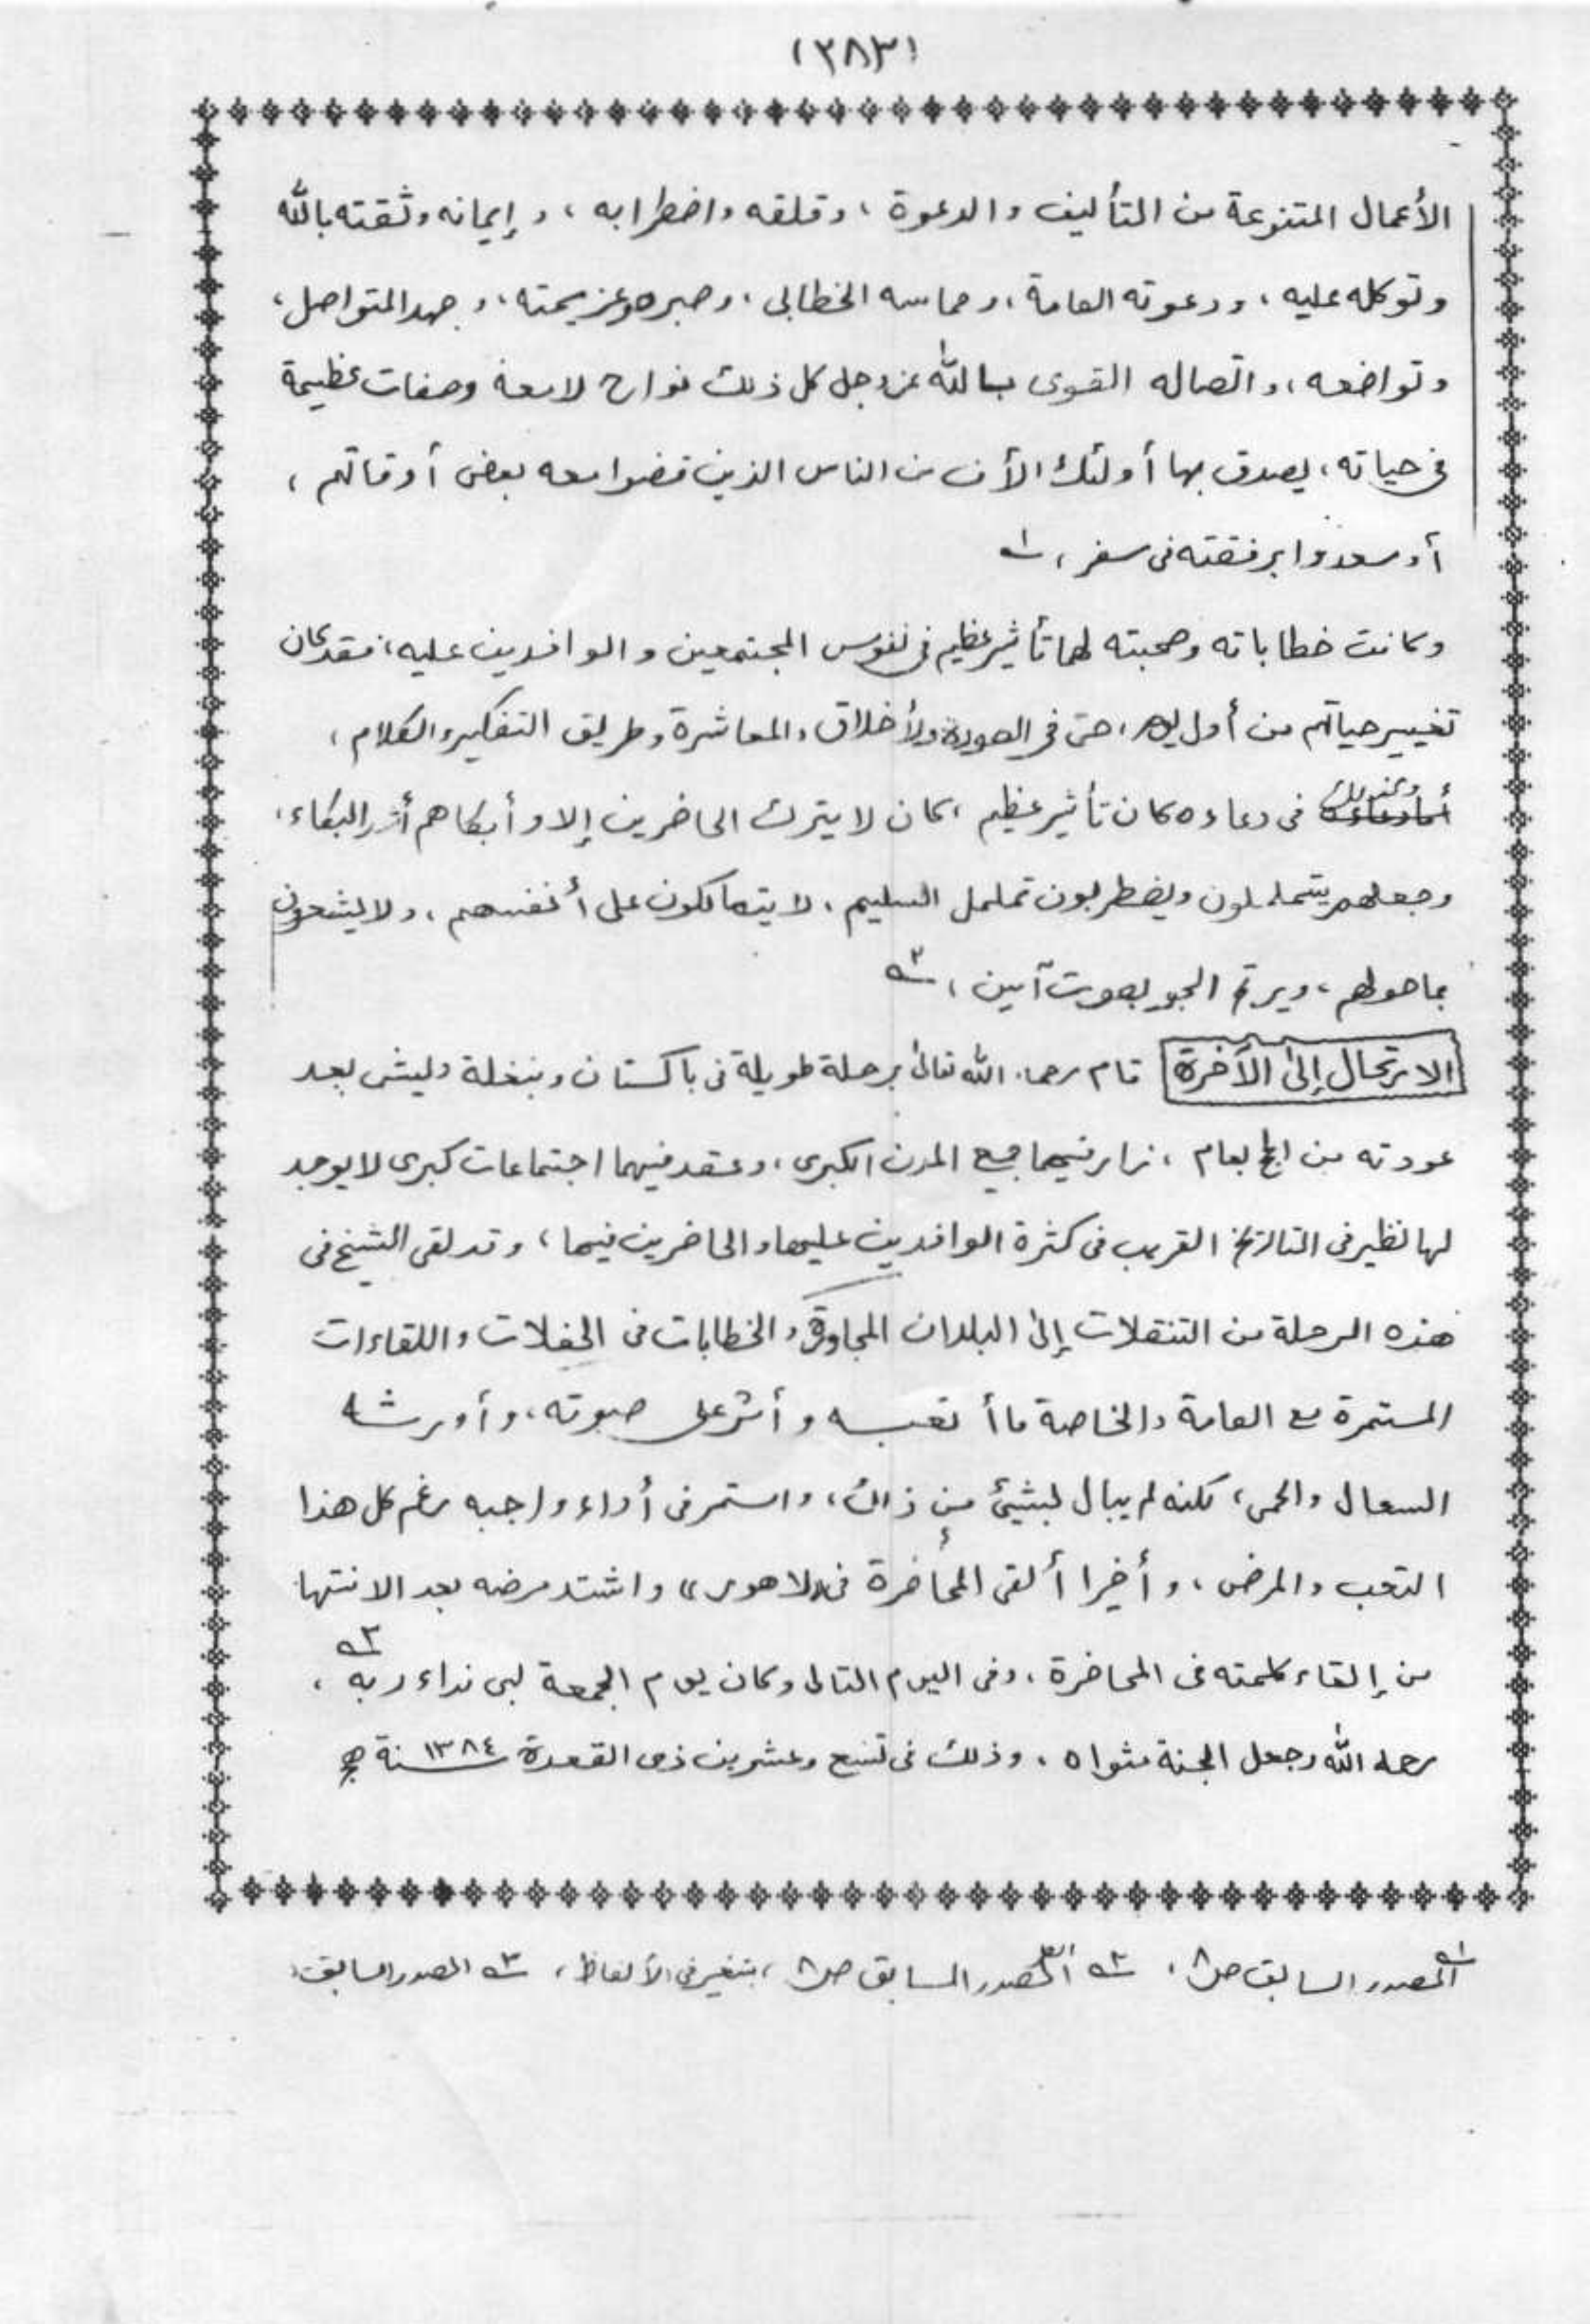 (٣٨٣)
الأعمال المتنوعة من التأليف والدعوة ، وقلقه واضطرابه ، وإيمانه وثقته بالله
وتوكله عليه ، ودعوته العامة ، وحماسه الخطابى ، وصبره وعزيمته ، وجهده المتواصل ،
وتواضعه ، واتصاله القوى بالله عزوجل كل ذلك نواح لامعة وصفات عظيمة
فى حياته ، يصدق بها أولئك من الناس الذين قضوا معه بعض أوقاتهم ،
أو سعدوا برفقته فى سفر ، ١ﻪ
وكانت خطاباته وصحبته لهما تأثير عظيم فى نفوس المجتمعين والوافدين عليه ، فقد كان
تغيير حياتهم من أول يوم ، حتى فى الصورة والأخلاق والمعاشرة وطريق التفكير والكلام ،
وكذلك فى دعاءه كان تأثير عظيم ، كان لا يترك الحاضرين إلا وأبكاهم أشد البكاء ،
وجعلهم يتململون ويضطربون تململ السليم ، لا يتمالكون على أنفسهم ، ولا يشعرون
بما حولهم ، ويرتج الجو بصوت آمين ، ٢ﻪ
الارتحال إلى الآخرة قام رحمه الله تعالى برحلة طويلة فى باكستان وبنغلة ديش بعد
عودته من الحج بعام ، زار فيهما جميع المدن الكبرى ، وعقد فيهما اجتماعات كبرى لا يوجد
لها نظير فى التاريخ القريب فى كثرة الوافدين عليها والحاضرين فيها ، وقد لقى الشيخ فى
هذه الرحلة من التنقلات إلى البلدان المجاورة والخطابات فى الحفلات واللقاءات
المستمرة مع العامة والخاصة ما أتعبه وأثر على صوته ، وأورثه
السعال والحمى ، لكنه لم يبال بشيئ من ذلك ، واستمر فى أداء واجبه رغم كل هذا
التعب والمرض ، وأخيرا ألقى المحاضرة فى «لاهور» واشتد مرضه بعد الانتها
من إلقاء كلمته فى المحاضرة ، وفى اليوم التالى وكان يوم الجمعة لبى نداء ربه ٣ﻪ ،
رحمه الله وجعل الجنة مثواه ، وذلك فى تسع وعشرين ذى القعدة سنة ١٣٨٤ ﻫ
١ﻪ المصدر السابق ص ٨ ، ٢ﻪ المصدر السابق ص ٨ ، بتغير فى الألفاظ ، ٣ﻪ المصدر السابق ،